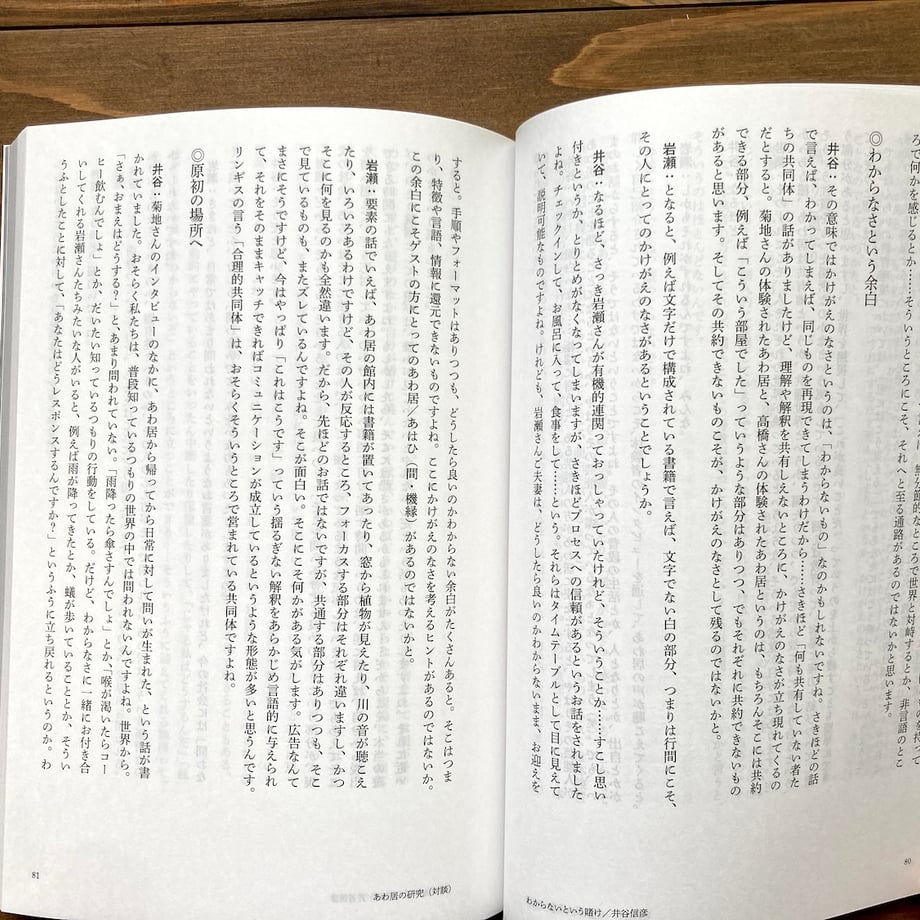 ろで何かを感じるとか……そういうところにこそ、それへと至る通路があるのではないかと思います。
◎わからなさという余白
井谷：その意味ではかけがえのなさというのは、「わからないもの」なのかもしれないですね。さきほどの話
で言えば、わかってしまえば、同じものを再現できてしまうわけだから……さきほど「何も共有していない者た
ちの共同体」の話がありましたけど、理解や解釈を共有しえないところに、かけがえのなさが立ち現れてくるの
だとすると。菊地さんの体験されたあわ居と、高橋さんの体験されたあわ居というのは、もちろんそこには共約
できる部分、例えば「こういう部屋でした」っていうような部分はありつつ、でもそれぞれに共約できないもの
があると思います。そしてその共約できないものこそが、かけがえのなさとして残るのではないかと。
岩瀬：となると、例えば文字だけで構成されている書籍で言えば、文字でない白の部分、つまりは行間にこそ、
その人にとってのかけがえのなさがあるということでしょうか。
井谷：なるほど、さっき岩瀬さんが有機的連関っておっしゃっていたけれど、そういうことか……すこし思い
付きというか、とりとめがなくなってしまいますが、さきほどプロセスへの信頼があるというお話をされました
よね。チェックインして、お風呂に入って、食事をして……という。それらはタイムテーブルとして目に見えて
いて、説明可能なものですよね。けれども、岩瀬さんご夫妻は、どうしたら良いのかわからないまま、お迎えを
80
わからないという賭け／井谷信彦
すると。手順やフォーマットはありつつも、どうしたら良いのかわからない余白がたくさんあると。そこはつま
り、特徴や言語、情報に還元できないものですよね。ここにかけがえのなさを考えるヒントがあるのではないか。
この余白にこそゲストの方にとってのあわ居／あはひ（間・機縁）があるのではないかと。
岩瀬：要素の話でいえば、あわ居の館内には書籍が置いてあったり、窓から植物が見えたり、川の音が聴こえ
たり、いろいろあるわけですけど、その人が反応するところ、フォーカスする部分はそれぞれ違いますし、かつ
そこに何を見るのかも全然違います。だから、先ほどのお話ではないですが、共通する部分はありつつも、そこ
で見ているものも、またズレているんですよね。そこが面白い。そこにこそ何かがある気がします。広告なんて
まさにそうですけど、今はやっぱり「これはこうです」っていう揺るぎない解釈をあらかじめ言語的に与えられ
て、それをそのままキャッチできればコミュニケーションが成立しているというような形態が多いと思うんです。
リンギスの言う「合理的共同体」は、おそらくそういうところで営まれている共同体ですよね。
◎原初の場所へ
井谷：菊地さんのインタビューのなかに、あわ居から帰ってから日常に対して問いが生まれた、という話が書
かれていました。おそらく私たちは、普段知っているつもりの世界の中では問われないんですよね。世界から。
「さぁ、おまえはどうする？」と、あまり問われていない。「雨降ったら傘さすんでしょ」とか、「喉が渇いたらコー
ヒー飲むんでしょ」とか、だいたい知っているつもりの行動をしている。だけど、わからなさに一緒にお付き合
いしてくれる岩瀬さんたちみたいな人がいると、例えば雨が降ってきたとか、蟻が歩いていることとか、そうい
うふとしたことに対して、「あなたはどうレスポンスするんですか？」というふうに立ち戻れるというのか。わ
81
あわ居の研究（対談）